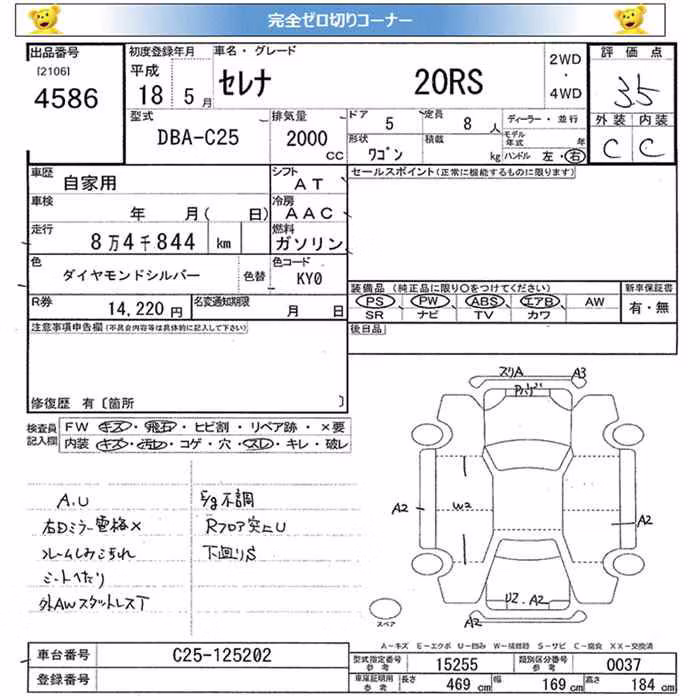 完全ゼロ切りコーナー
出品番号
[2106]
4586
初度登録年月
平成
18 5月
車名・グレード
セレナ 20RS
2WD
・
4WD
評価点
3.5
外装 内装
C C
型式
DBA-C25
排気量
2000
CC
ドア
5
定員
8 人
形状
ワゴン
積載
kg
ディーラー・並行
モデル年式 年
ハンドル 左・右
車歴
自家用
シフト
AT
車検
年 月( 日)
冷房
AAC
走行
8万4千844 km
燃料
ガソリン
色
ダイヤモンドシルバー
色替
色コード
KY0
R券
14,220円
名変通知期限
月 日
セールスポイント(正常に機能するものに限ります)
装備品(純正品に限り○をつけてください)
PS PW ABS エアB AW
SR ナビ TV カワ
新車保証書
有・無
後日品
注意事項申告欄(不具合内容等は具体的に記入して下さい)
修復歴 有〔箇所 〕
検査員記入欄
FW キズ・飛石・ヒビ割・リペア跡・×要
内装 キズ・汚レ・コゲ・穴・スレ・キレ・破レ
A.U
右Dミラー電格×
シートへたり
不調
Rフロア突上U
下廻りS
スリA A3
A2
W2
A2
U2.A2
A2
スペア
A-キズ E-エクボ U-凹み W-補修跡 S-サビ C-腐食 XX-交換済
車台番号
C25-125202
登録番号
型式指定番号
参考
15255
類別区分番号
参考
0037
車庫証明用
参考
長さ 469 cm 幅 169 cm 高さ 184 cm